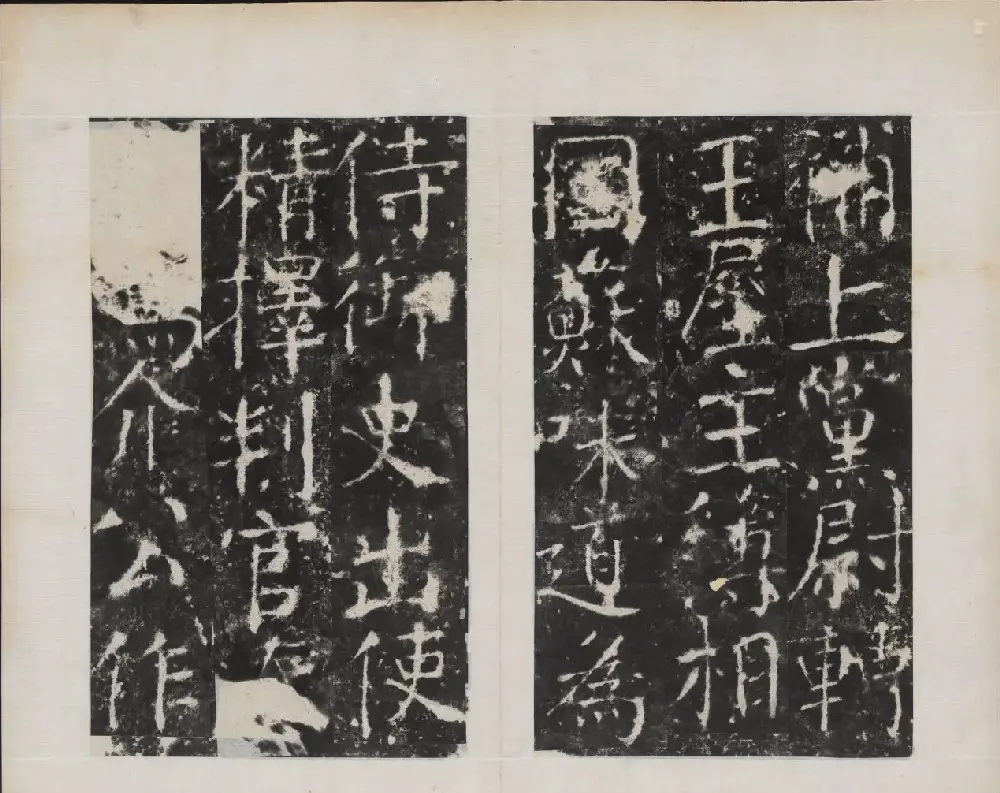 上黨尉轉
王屋主簿相
國蘇味道為
侍御史出使
精擇判官
介公作